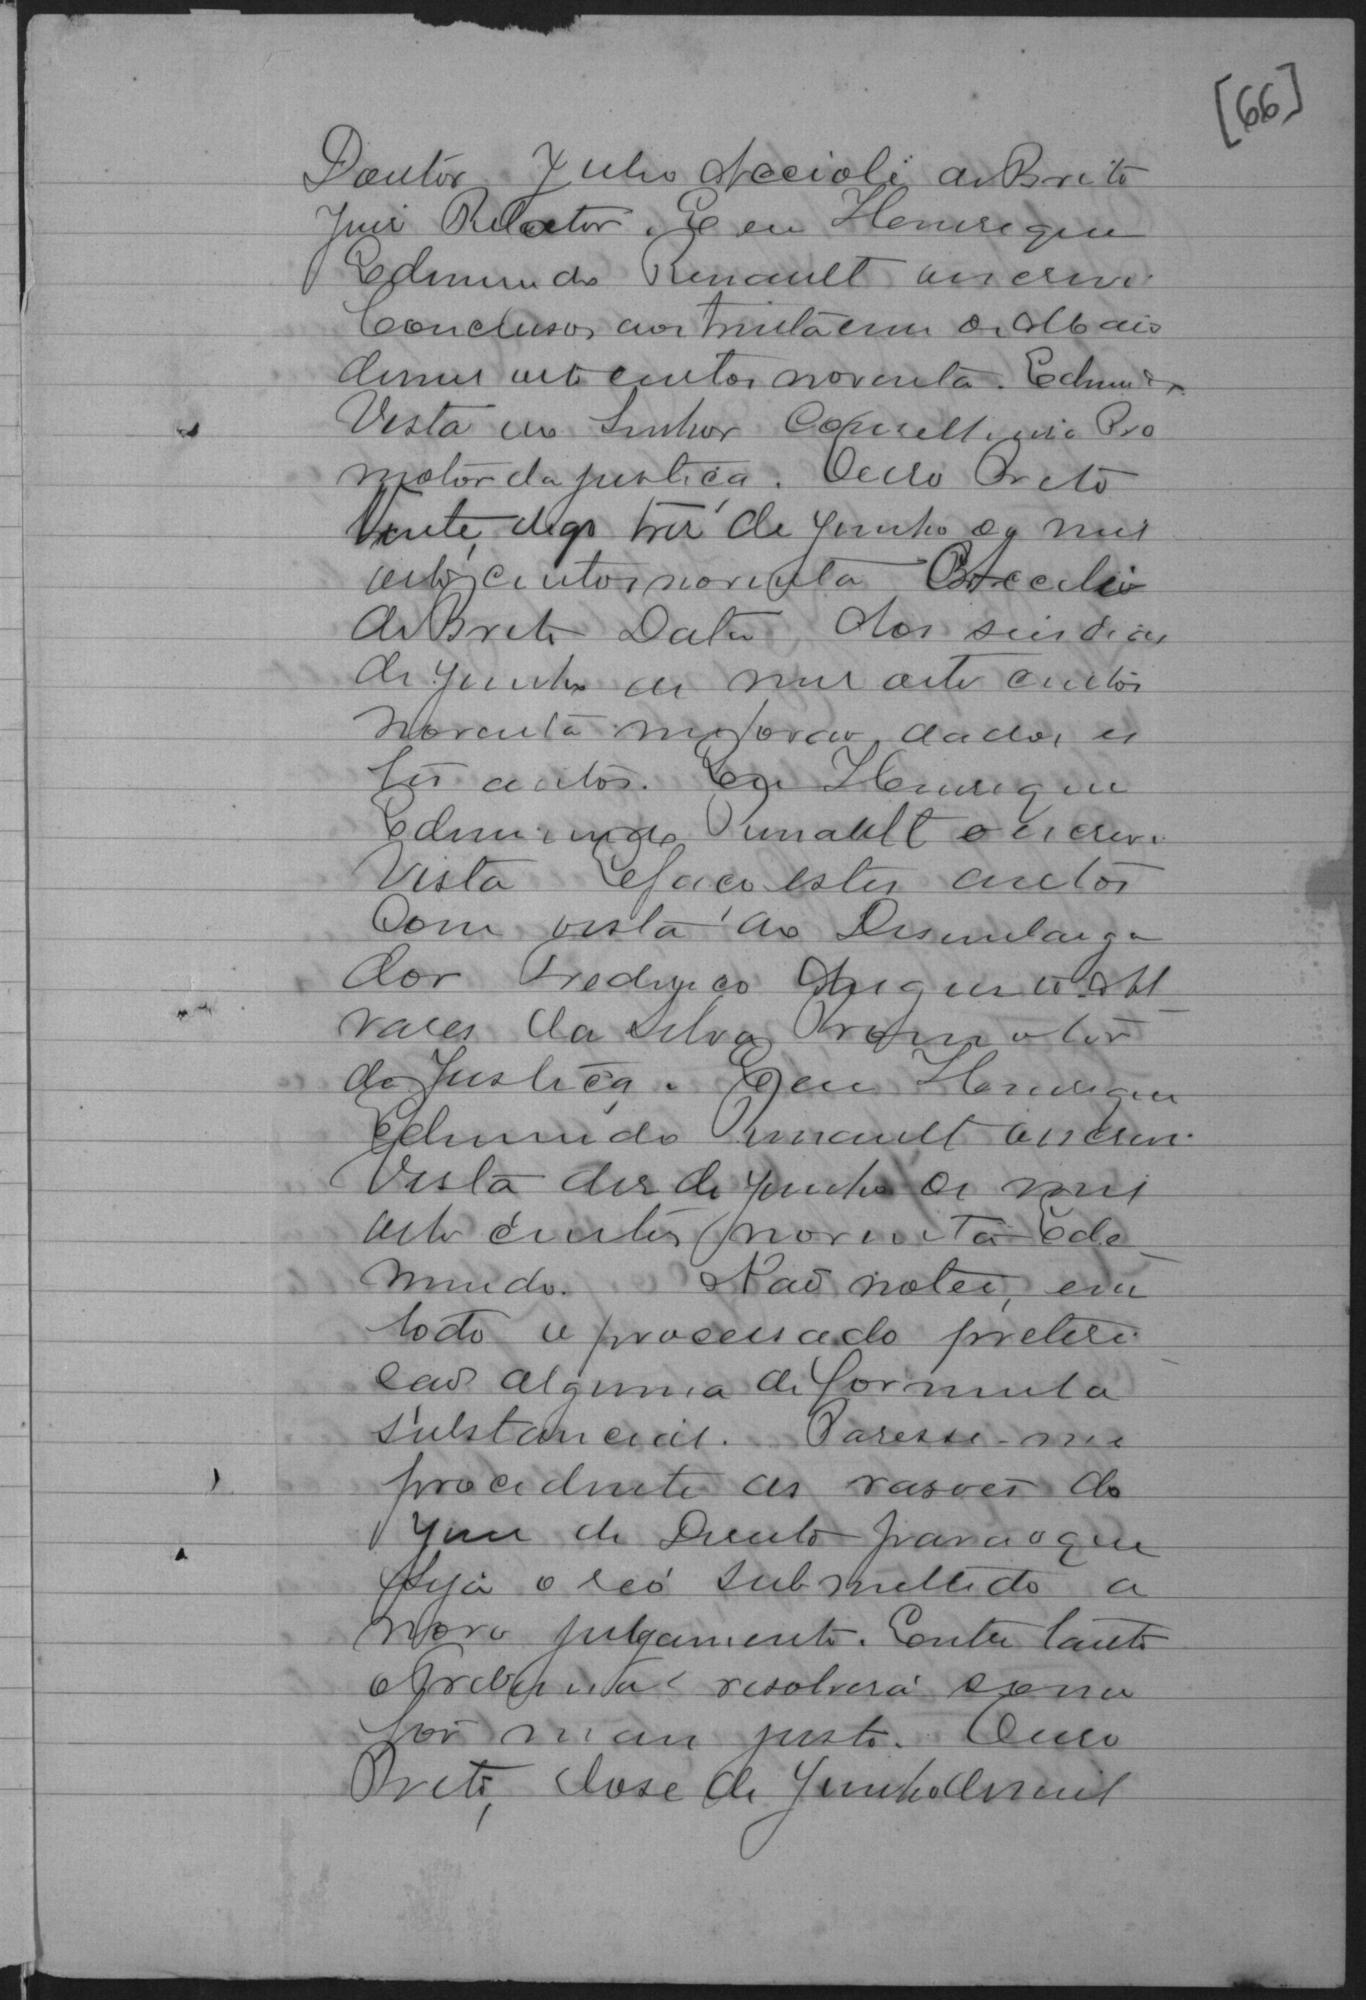 [66]
Doutor Julio Accioli de Brito
Juiz Relator. E eu Henrique
Edmundo Renault o escrevi.
Conclusos aos trinta e um de Maio
de mil oito centos noventa. Edmundo
Vista ao Senhor Conselheiro Pro
motor da justiça. Ouro Preto
Vinte, digo tres de Junho de mil
oito centos noventa Accioli
de Brito Data Aos seis dias
de Junho de mil oito centos
noventa me forão dados es
tes autos. Eu Henrique
Edmundo Renault o escrevi.
Vista E faço estes autos
Com vista ao Desembarga
dor Frederico Augusto Al
vares da Silva Promotor
da Justiça. E eu Henrique
Edmundo Renault o escrevi.
Vista dez de Junho de mil
oito centos noventa Ed
mundo. Não notei, em
todo o processado preteri
cão alguma de formula
substancial. Paresse-me
procedente as rasões do
Juiz de Direito para o que
seja o réo submettido a
novo julgamento. Entre tanto
o Tribunal resolverá como
for mais justo. Ouro
Preto, dose de Junho de mil